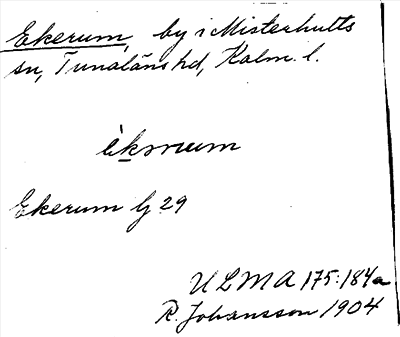 Ekerum, by i Misterhults
sn, Tunaläns hd, Kalm. l.
Ekerum Lj 29
ULMA 175:184a
R. Johansson 1904